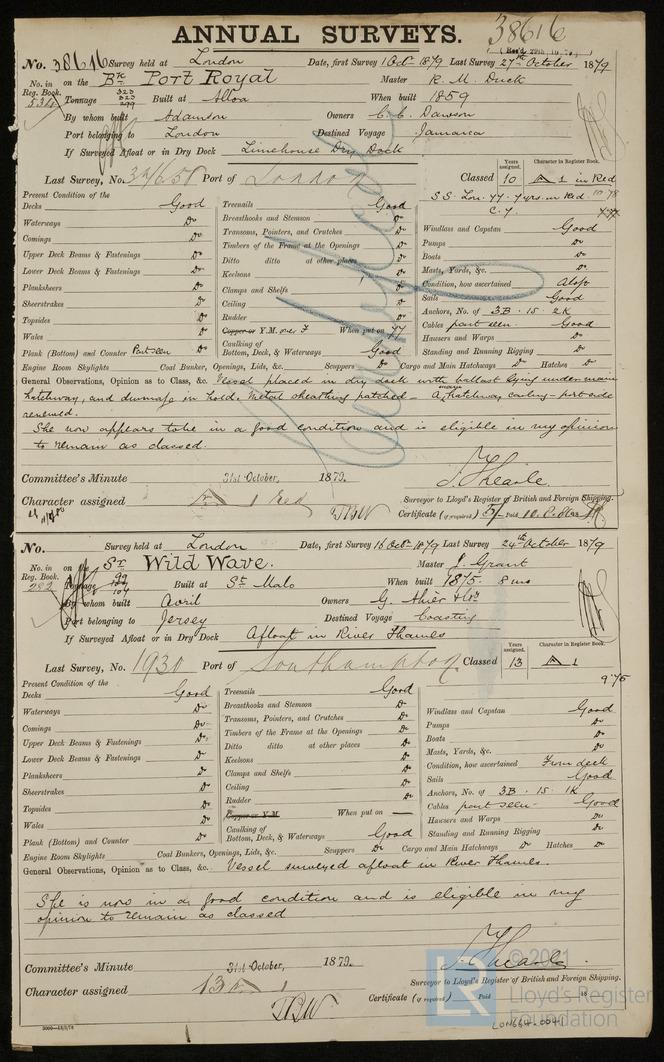 ANNUAL SURVEYS. 38616
(Rec'd. 29th, 10, 79.)
No. 38616 Survey held at London Date, first Survey 1 Octr 1879 Last Survey 27th October 1879
No. in Reg. Book. on the Bk Port Royal Master R. M. Duck
Tonnage 323 323 299 Built at Alloa When built 1859
By whom built Adamson Owners C. C. Dawson
Port belonging to London Destined Voyage Jamaica
If Surveyed Afloat or in Dry Dock Limehouse Dry Dock
Last Survey, No. 34650 Port of London Classed Years assigned. 10 Character in Register Book. A 1 in Red
S.S. Lon. 77. 7 yrs. in Red 10 78
C. 7
Present Condition of the
Decks Good
Waterways Do
Comings Do
Upper Deck Beams & Fastenings Do
Lower Deck Beams & Fastenings Do
Planksheers Do
Sheerstrakes Do
Topsides Do
Wales Do
Plank (Bottom) and Counter Part seen Do
Treenails Good
Breasthooks and Stemson Do
Transoms, Pointers, and Crutches Do
Timbers of the Frame at the Openings Do
Ditto ditto at other places Do
Keelsons Do
Clamps and Shelfs Do
Ceiling Do
Rudder Do
Copper or Y.M. over F When put on 77
Caulking of Bottom, Deck, & Waterways Good
Windlass and Capstan Good
Pumps Do
Boats Do
Masts, Yards, &c. Do
Condition, how ascertained Aloft
Sails Good
Anchors, No. of 3B. 1S. 2K
Cables part seen. Good
Hausers and Warps Do
Standing and Running Rigging Do
Engine Room Skylights Coal Bunkers, Openings, Lids, &c. Scuppers Do Cargo and Main Hatchways Do Hatches Do
General Observations, Opinion as to Class, &c. Vessel placed in dry dock with ballast lying under main
hatchway, and dunnage in hold. Metal sheathing patched - A main hatchway carling - port side
renewed.
She now appears to be in a good condition and is eligible in my opinion
to remain as classed.
Committee's Minute 31st October, 1879.
Character assigned A 1 Red
J. Thearle.
Surveyor to Lloyd's Register of British and Foreign Shipping.
Certificate (if required) 5/ Paid
No. Survey held at London Date, first Survey 16 Octr 1879 Last Survey 24th October 1879
No. in Reg. Book. on the Sr Wild Wave. Master J. Grant
282 Tonnage 99 104 Built at St Malo When built 1875. 8 mo
By whom built Avril Owners G. Ahier & Co
Port belonging to Jersey Destined Voyage Coasting
If Surveyed Afloat or in Dry Dock Afloat in River Thames
Last Survey, No. 1930 Port of Southampton Classed Years assigned. 13 Character in Register Book. A 1
9.75
Present Condition of the
Decks Good
Waterways Do
Comings Do
Upper Deck Beams & Fastenings Do
Lower Deck Beams & Fastenings Do
Planksheers Do
Sheerstrakes Do
Topsides Do
Wales Do
Plank (Bottom) and Counter Do
Treenails Good
Breasthooks and Stemson Do
Transoms, Pointers, and Crutches Do
Timbers of the Frame at the Openings Do
Ditto ditto at other places Do
Keelsons Do
Clamps and Shelfs Do
Ceiling Do
Rudder Do
Copper or Y.M. When put on —
Caulking of Bottom, Deck, & Waterways Good
Windlass and Capstan Good
Pumps Do
Boats Do
Masts, Yards, &c. Do
Condition, how ascertained From deck
Sails Good
Anchors, No. of 3B. 1S. 1K
Cables part seen - Good
Hausers and Warps Do
Standing and Running Rigging Do
Engine Room Skylights Coal Bunkers, Openings, Lids, &c. Scuppers Do Cargo and Main Hatchways Do Hatches Do
General Observations, Opinion as to Class, &c. Vessel surveyed afloat in River Thames.
She is now in a good condition and is eligible in my
opinion to remain as classed
Committee's Minute 31st October, 1879.
Character assigned 13 A 1
J. Thearle.
Surveyor to Lloyd's Register of British and Foreign Shipping.
Certificate (if required) Paid 18
© 2021
LR Lloyd's Register
Foundation
LON664-0041